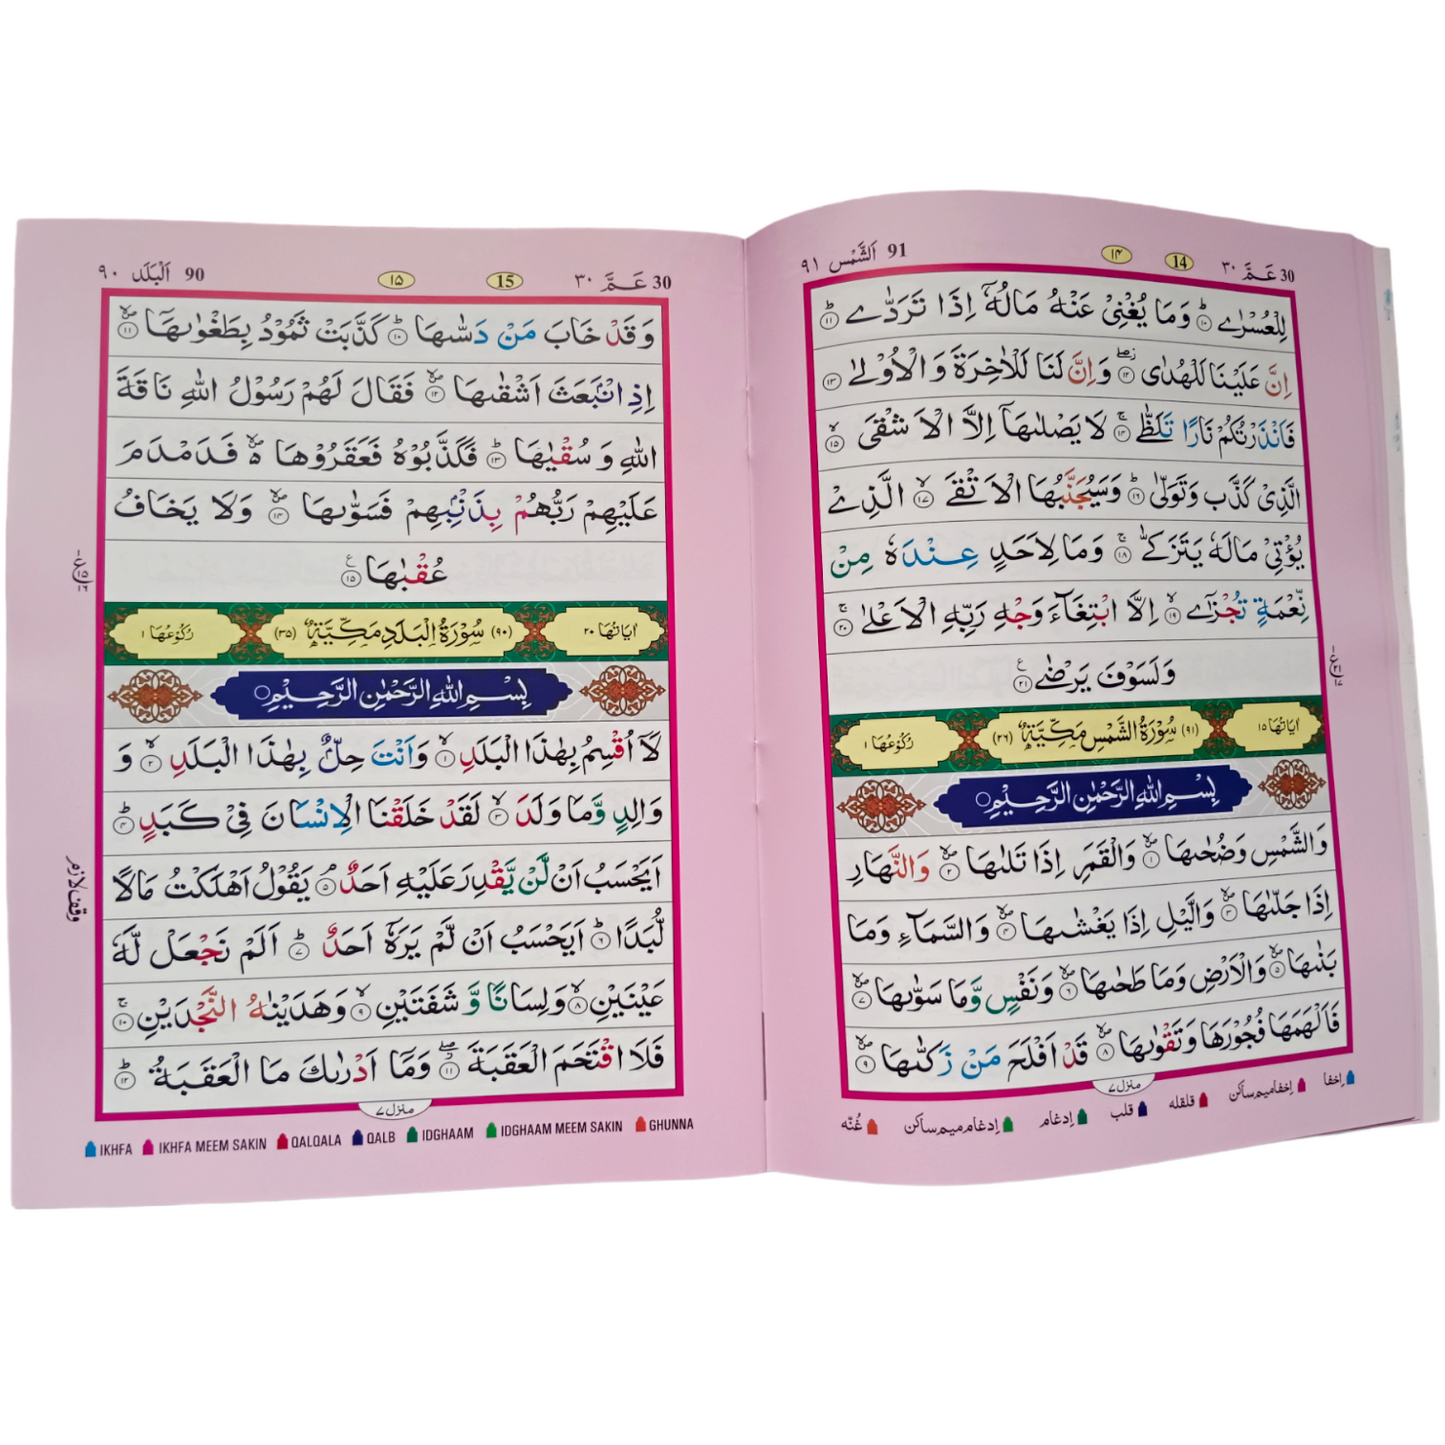 91 اَلشَّمْس ٩١
١٤ 14
عَـمَّ ٣٠ 30
لِلْعُسْرٰے ؕ ١٠ وَمَا يُغْنِىْ عَنْهُ مَالُهٗۤ اِذَا تَرَدّٰے ؕ ١١
اِنَّ عَلَيْنَا لَلْهُدٰى ۖ ١٢ وَاِنَّ لَنَا لَلْاٰخِرَةَ وَ الْاُوْلٰى ١٣
فَاَنْذَرْتُكُمْ نَارًا تَلَظّٰے ۚ ١٤ لَا يَصْلٰىهَاۤ اِلَّا الْاَ شْقَى ۙ ١٥
الَّذِىْ كَذَّب وَتَوَلّٰى ؕ ١٦ وَسَيُجَنَّبُهَا الْاَ تْقَے ۙ ١٧ الَّذِےْ
يُؤْتِىْ مَالَهٗ يَتَزَكّٰے ۚ ١٨ وَمَا لِاَحَدٍ عِنْدَهٗ مِنْ
نِّعْمَةٍ تُجْزٰٓے ۙ ١٩ اِلَّا ابْتِغَآءَ وَجْهِ رَبِّهِ الْاَعْلٰى ۚ ٢٠
وَلَسَوْفَ يَرْضٰے ٢١
اٰيَاتُهَا ١٥ (٩١) سُوْرَةُ الشَّمْسِ مَكِّيَّةٌ (٢٦) رُكُوْعُهَا ١
بِسْمِ اللهِ الرَّحْمٰنِ الرَّحِيْمِ
وَالشَّمْسِ وَضُحٰىهَا ۙ ١ وَالْقَمَرِ اِذَا تَلٰىهَا ۙ ٢ وَالنَّهَارِ
اِذَا جَلّٰىهَا ۙ ٣ وَالَّيْلِ اِذَا يَغْشٰىهَا ۙ ٤ وَالسَّمَآءِ وَمَا
بَنٰىهَا ۙ ٥ وَالْاَرْضِ وَمَا طَحٰىهَا ۙ ٦ وَنَفْسٍ وَّمَا سَوّٰىهَا ۙ ٧
فَاَلْهَمَهَا فُجُوْرَهَا وَتَقْوٰىهَا ۙ ٨ قَدْ اَفْلَحَ مَنْ زَكّٰىهَا ۙ ٩
منزل ٧
اِخفا اِخفا میم ساکن قلقله قلب اِدغام اِدغام میم ساکن غُنّه
90 اَلْبَلَد ٩٠
١٥ 15
عَـمَّ ٣٠ 30
وَ قَدْ خَابَ مَنْ دَسّٰىهَا ؕ ١٠ كَذَّبَتْ ثَمُوْدُ بِطَغْوٰىهَاۤ ۙ ١١
اِذِ انْۢبَعَثَ اَشْقٰىهَا ۙ ١٢ فَقَالَ لَهُمْ رَسُوْلُ اللهِ نَاقَةَ
اللهِ وَ سُقْيٰهَا ؕ ١٣ فَكَذَّبُوْهُ فَعَقَرُوْهَا ۙ فَدَمْدَمَ
عَلَيْهِمْ رَبُّهُمْ بِذَنْۢبِهِمْ فَسَوّٰىهَا ۙ ١٤ وَلَا يَخَافُ
عُقْبٰهَا ١٥
اٰيَاتُهَا ٢٠ (٩٠) سُوْرَةُ الْبَلَدِ مَكِّيَّةٌ (٣٥) رُكُوْعُهَا ١
بِسْمِ اللهِ الرَّحْمٰنِ الرَّحِيْمِ
لَاۤ اُقْسِمُ بِهٰذَا الْبَلَدِ ۙ ١ وَاَنْتَ حِلٌّۢ بِهٰذَا الْبَلَدِ ۙ ٢ وَ
وَالِدٍ وَّمَا وَلَدَ ۙ ٣ لَقَدْ خَلَقْنَا الْاِنْسَانَ فِىْ كَبَدٍ ؕ ٤
اَيَحْسَبُ اَنْ لَّنْ يَّقْدِرَ عَلَيْهِ اَحَدٌ ۘ ٥ يَقُوْلُ اَهْلَكْتُ مَالًا
لُّبَدًا ؕ ٦ اَيَحْسَبُ اَنْ لَّمْ يَرَهٗۤ اَحَدٌ ؕ ٧ اَلَمْ نَجْعَلْ لَّهٗ
عَيْنَيْنِ ۙ ٨ وَلِسَانًا وَّ شَفَتَيْنِ ۙ ٩ وَهَدَيْنٰهُ النَّجْدَيْنِ ۚ ١٠
فَلَا اقْتَحَمَ الْعَقَبَةَ ۖ ١١ وَمَاۤ اَدْرٰىكَ مَا الْعَقَبَةُ ؕ ١٢
وقف لازم
منزل ٧
IKHFA IKHFA MEEM SAKIN QALQALA QALB IDGHAAM IDGHAAM MEEM SAKIN GHUNNA